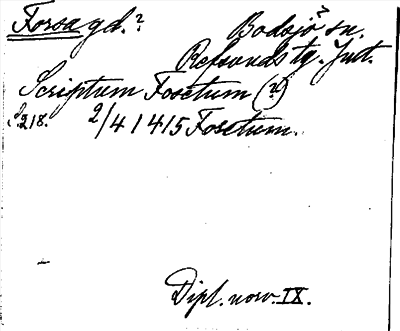 Forsa gd.? Bodsjö? sn.
Refsunds tg. Jmt.
Scriptum Fosetum (?)
S. 218. 2/4 1415 Fosetum.
Dipl. norv. IX.